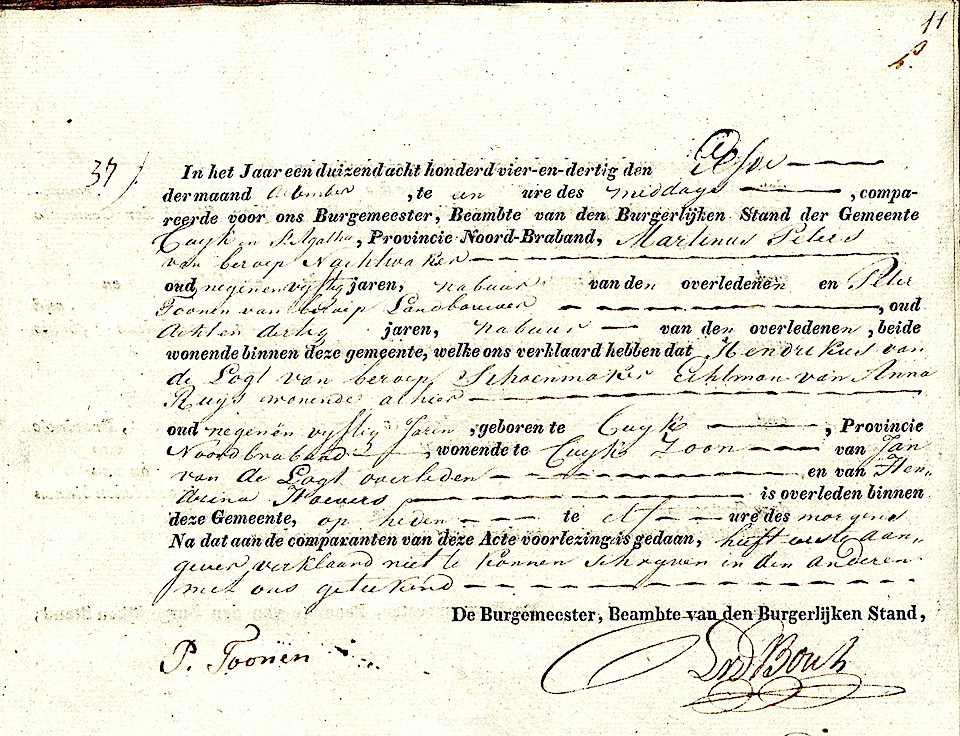 11
37).
In het Jaar een duizend acht honderd vier-en-dertig den Elfde
der maand ,te een ure des middags , compa-
reerde voor ons Burgemeester, Beambte van den Burgerlijken Stand der Gemeente
Cuyk en St Agatha, Provincie Noord-Braband, Martinus Peters
van beroep Nachtwaker
oud negenen vyftig jaren, nabuur van den overledenen en Peter
Toonen van beroep Landbouwer , oud
Achten dertig jaren, nabuur van den overledenen , beide
wonende binnen deze gemeente, welke ons verklaard hebben dat Hendrikus van
de Logt van beroep Schoenmaker Echtman van Anna
Ruijs wonende alhier
oud negenën vyftig Jaren , geboren te Cuyk , Provincie
Noordbraband , wonende te Cuyk Zoon van Jan
van de Logt overleden en van Hen,
drina Hoevers is overleden binnen
deze Gemeente, op heden te elf ure des morgens
Na dat aan de comparanten van deze Acte voorlezing is gedaan, heeft eerste aan,
gever verklaard niet te konnen Schryven en den anderen
met ons geteekend
De Burgemeester, Beambte van den Burgerlijken Stand,
P. Toonen